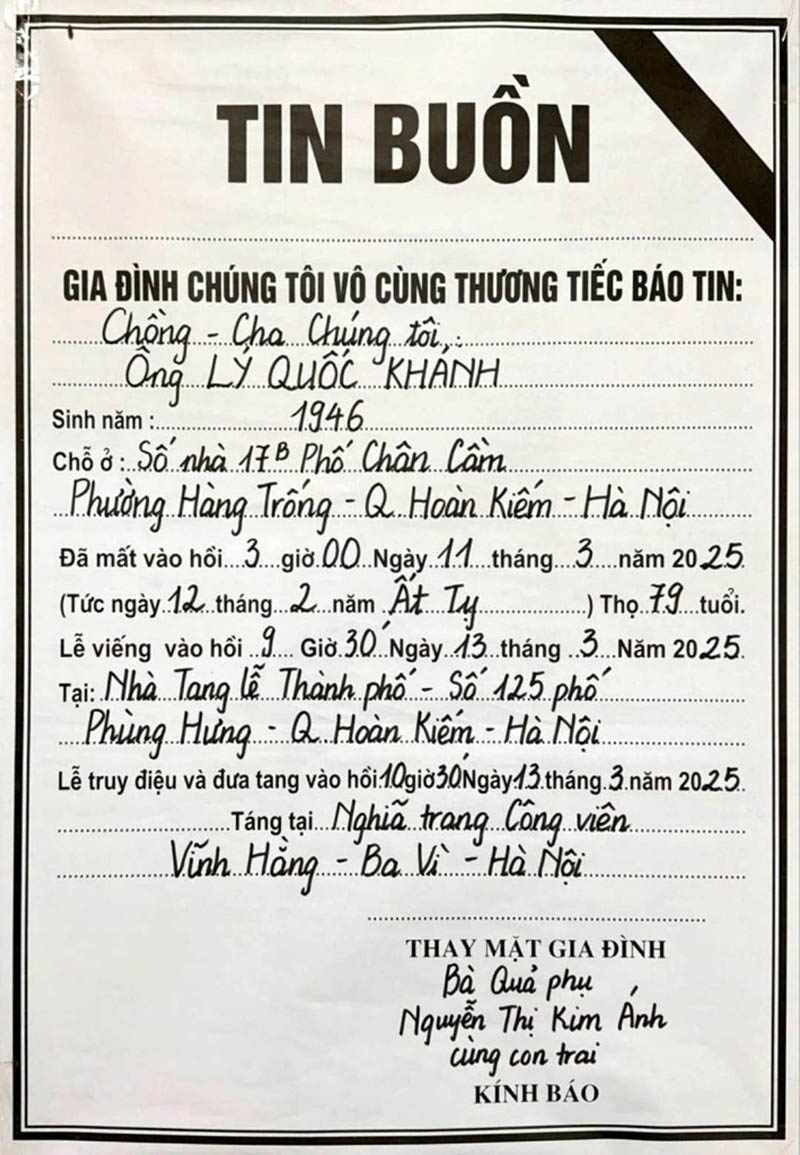 TIN BUỒN
GIA ĐÌNH CHÚNG TÔI VÔ CÙNG THƯƠNG TIẾC BÁO TIN:
Chồng - Cha Chúng tôi,:
Ông LÝ QUỐC KHÁNH
Sinh năm : 1946
Chỗ ở : Số nhà 17B Phố Chân Cầm
Phường Hàng Trống - Q. Hoàn Kiếm - Hà Nội
Đã mất vào hồi 3 giờ 00 Ngày 11 tháng 3 năm 2025
(Tức ngày 12 tháng 2 năm Ất Tỵ ) Thọ 79 tuổi.
Lễ viếng vào hồi 9 Giờ 30 Ngày 13 tháng 3 Năm 2025
Tại: Nhà Tang lễ Thành phố - Số 125 phố
Phùng Hưng - Q. Hoàn Kiếm - Hà Nội
Lễ truy điệu và đưa tang vào hồi 10 giờ 30 Ngày 13 tháng 3 năm 2025
Táng tại Nghĩa trang Công viên
Vĩnh Hằng - Ba Vì - Hà Nội
THAY MẶT GIA ĐÌNH
Bà Quả phụ
Nguyễn Thị Kim Ánh
cùng con trai
KÍNH BÁO